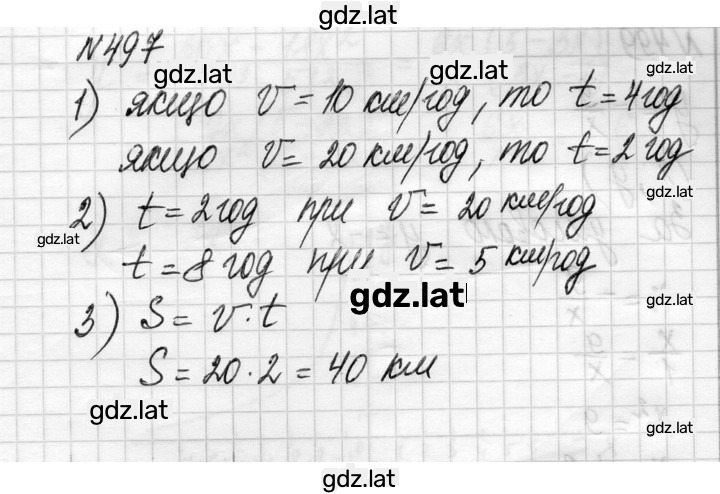 gdz.lat
N497
gdz.lat gdz.lat gdz.lat
1) якщо v = 10 км/год, то t = 4 год
якщо v = 20 км/год, то t = 2 год
gdz.lat
2) t = 2 год при v = 20 км/год
gdz.lat
t = 8 год при v = 5 км/год
gdz.lat gdz.lat
3) S = v · t
S = 20 · 2 = 40 км
gdz.lat gdz.lat
gdz.lat